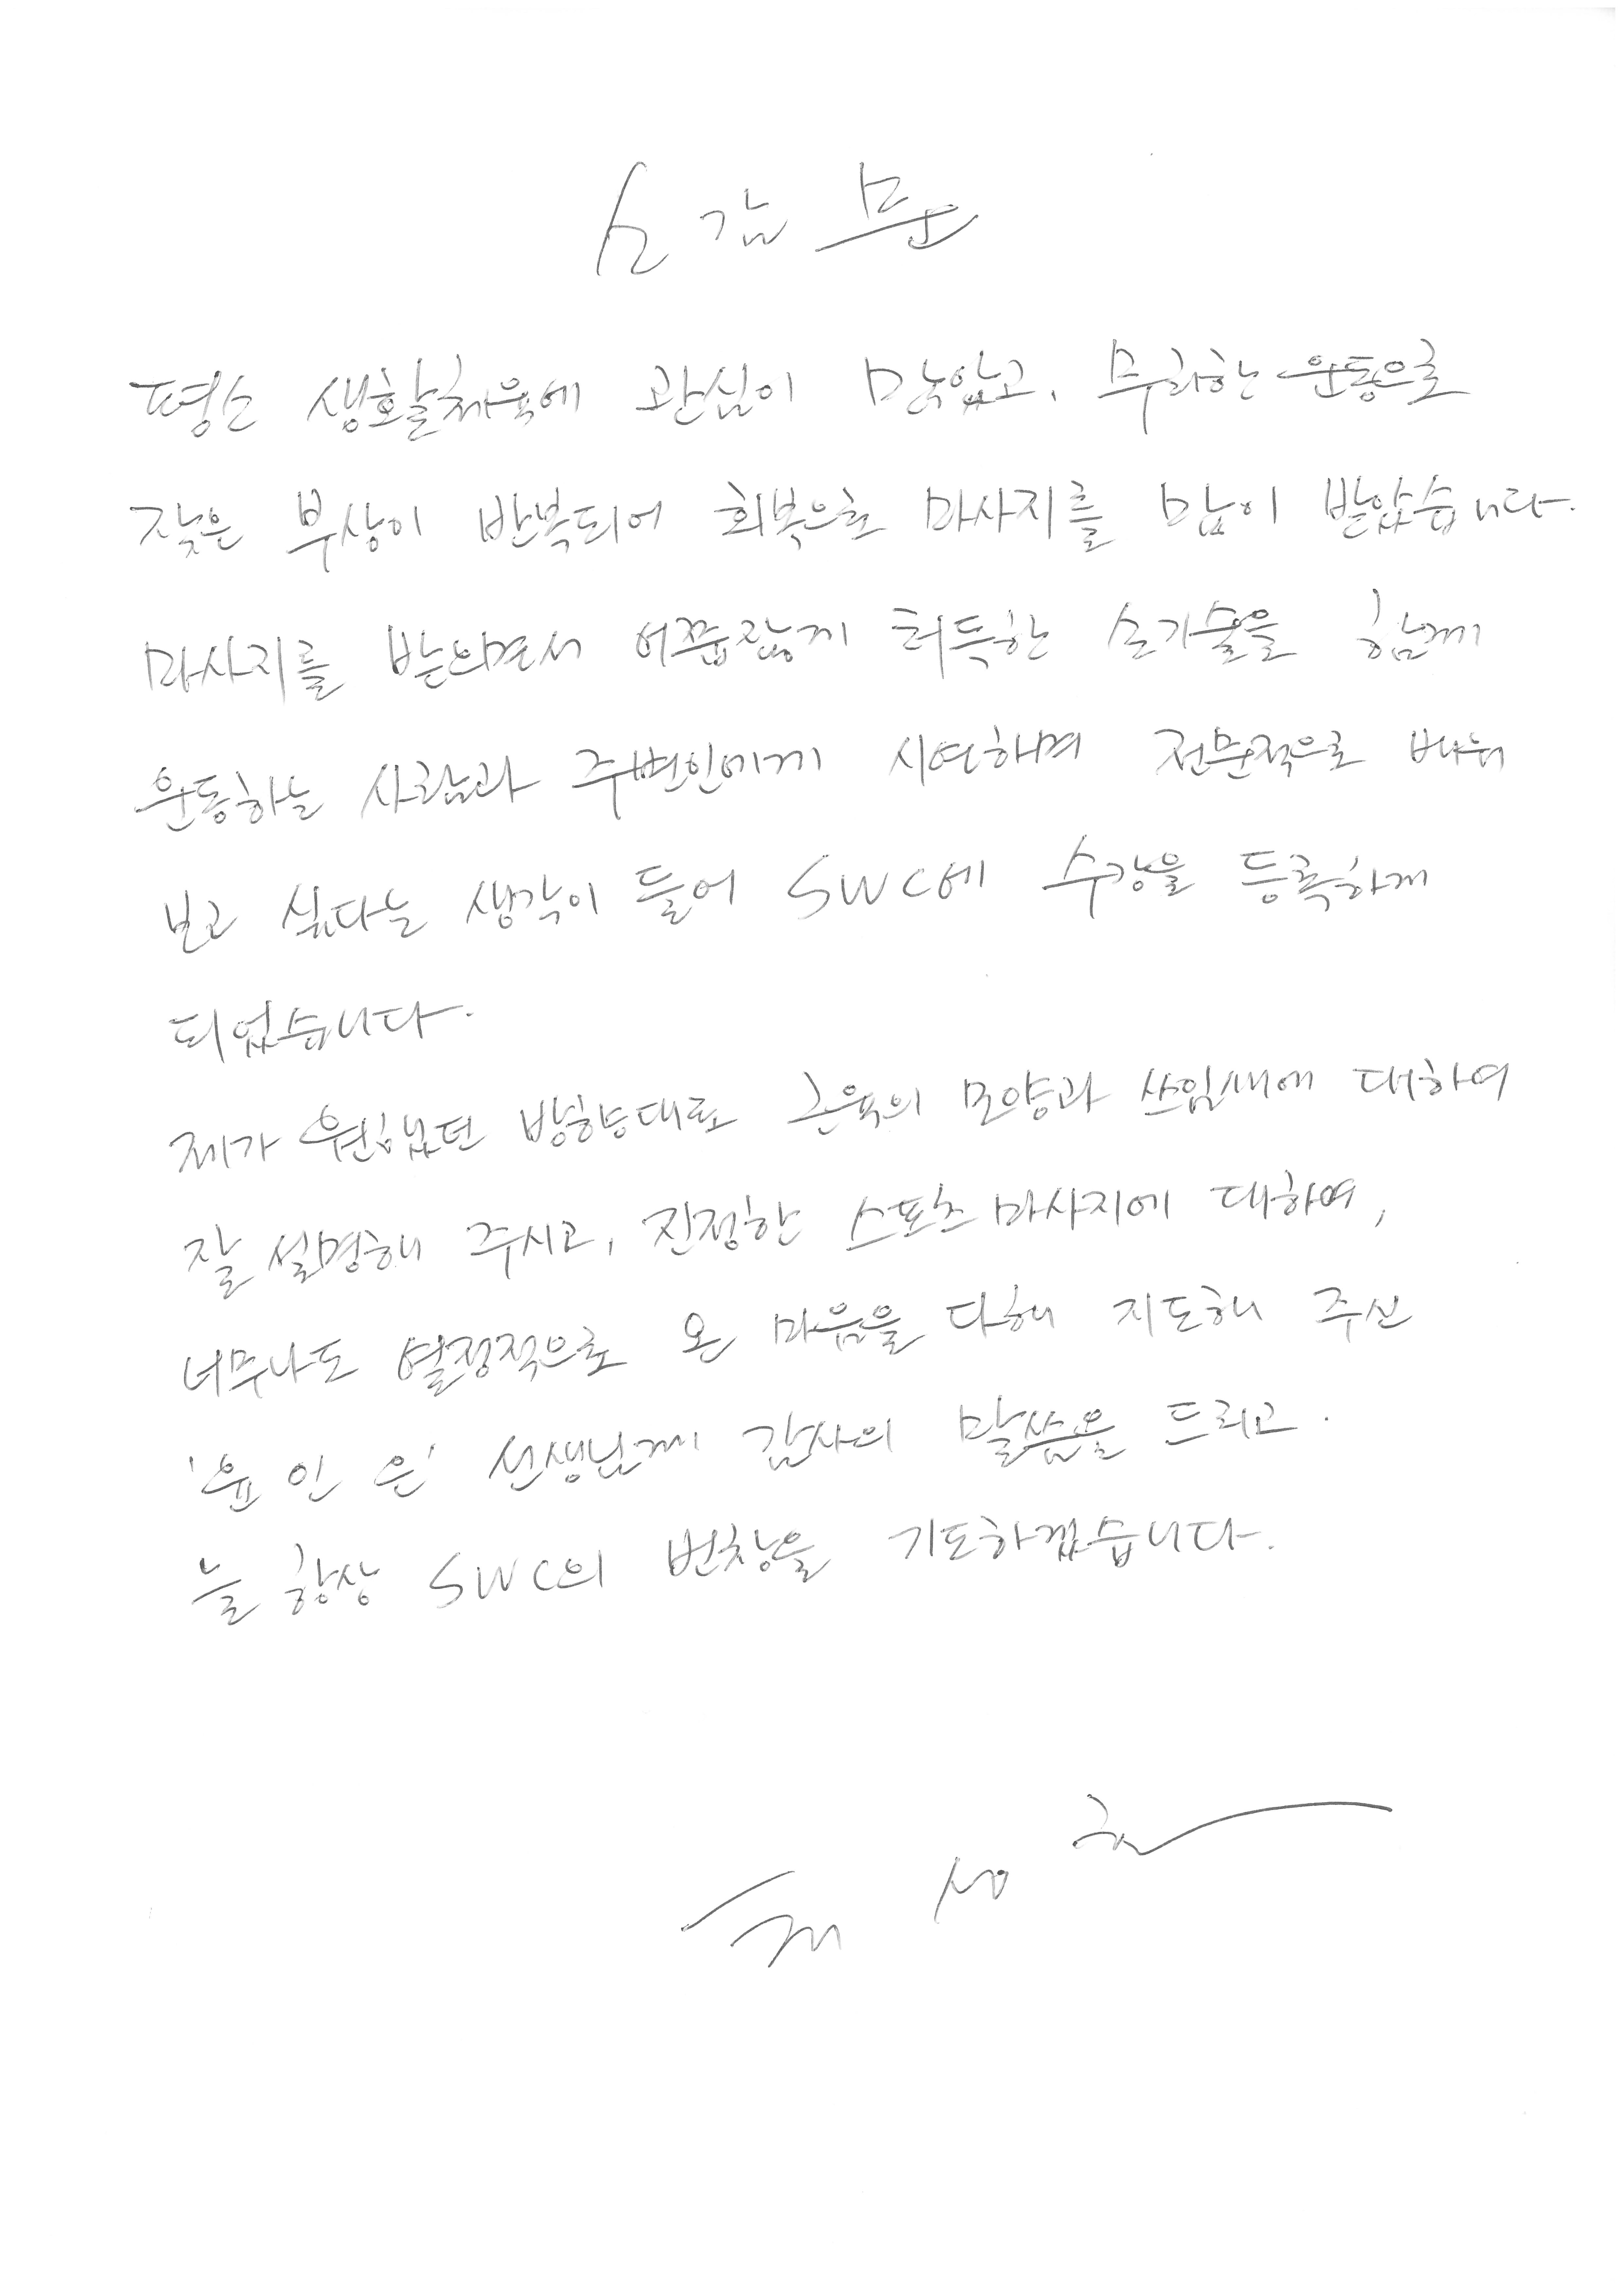 소감문
평소 생활체육에 관심이 많았고, 무리한 운동으로
잦은 부상이 반복되어 회복으로 마사지를 많이 받았습니다.
마사지를 받으면서 어쭙잖게 취득한 손기술을 함께
운동하는 사람과 주변인에게 시연하며 전문적으로 배워
보고 싶다는 생각이 들어 SWC에 수강을 등록하게
되었습니다.
제가 원했던 방향대로 근육의 모양과 쓰임새에 대하여
잘 설명해 주시고, 진정한 스포츠 마사지에 대하여,
너무나도 열정적으로 온 마음을 다해 지도해 주신
'윤 인 은' 선생님께 감사의 말씀을 드리고.
늘 항상 SWC의 번창을 기도하겠습니다.